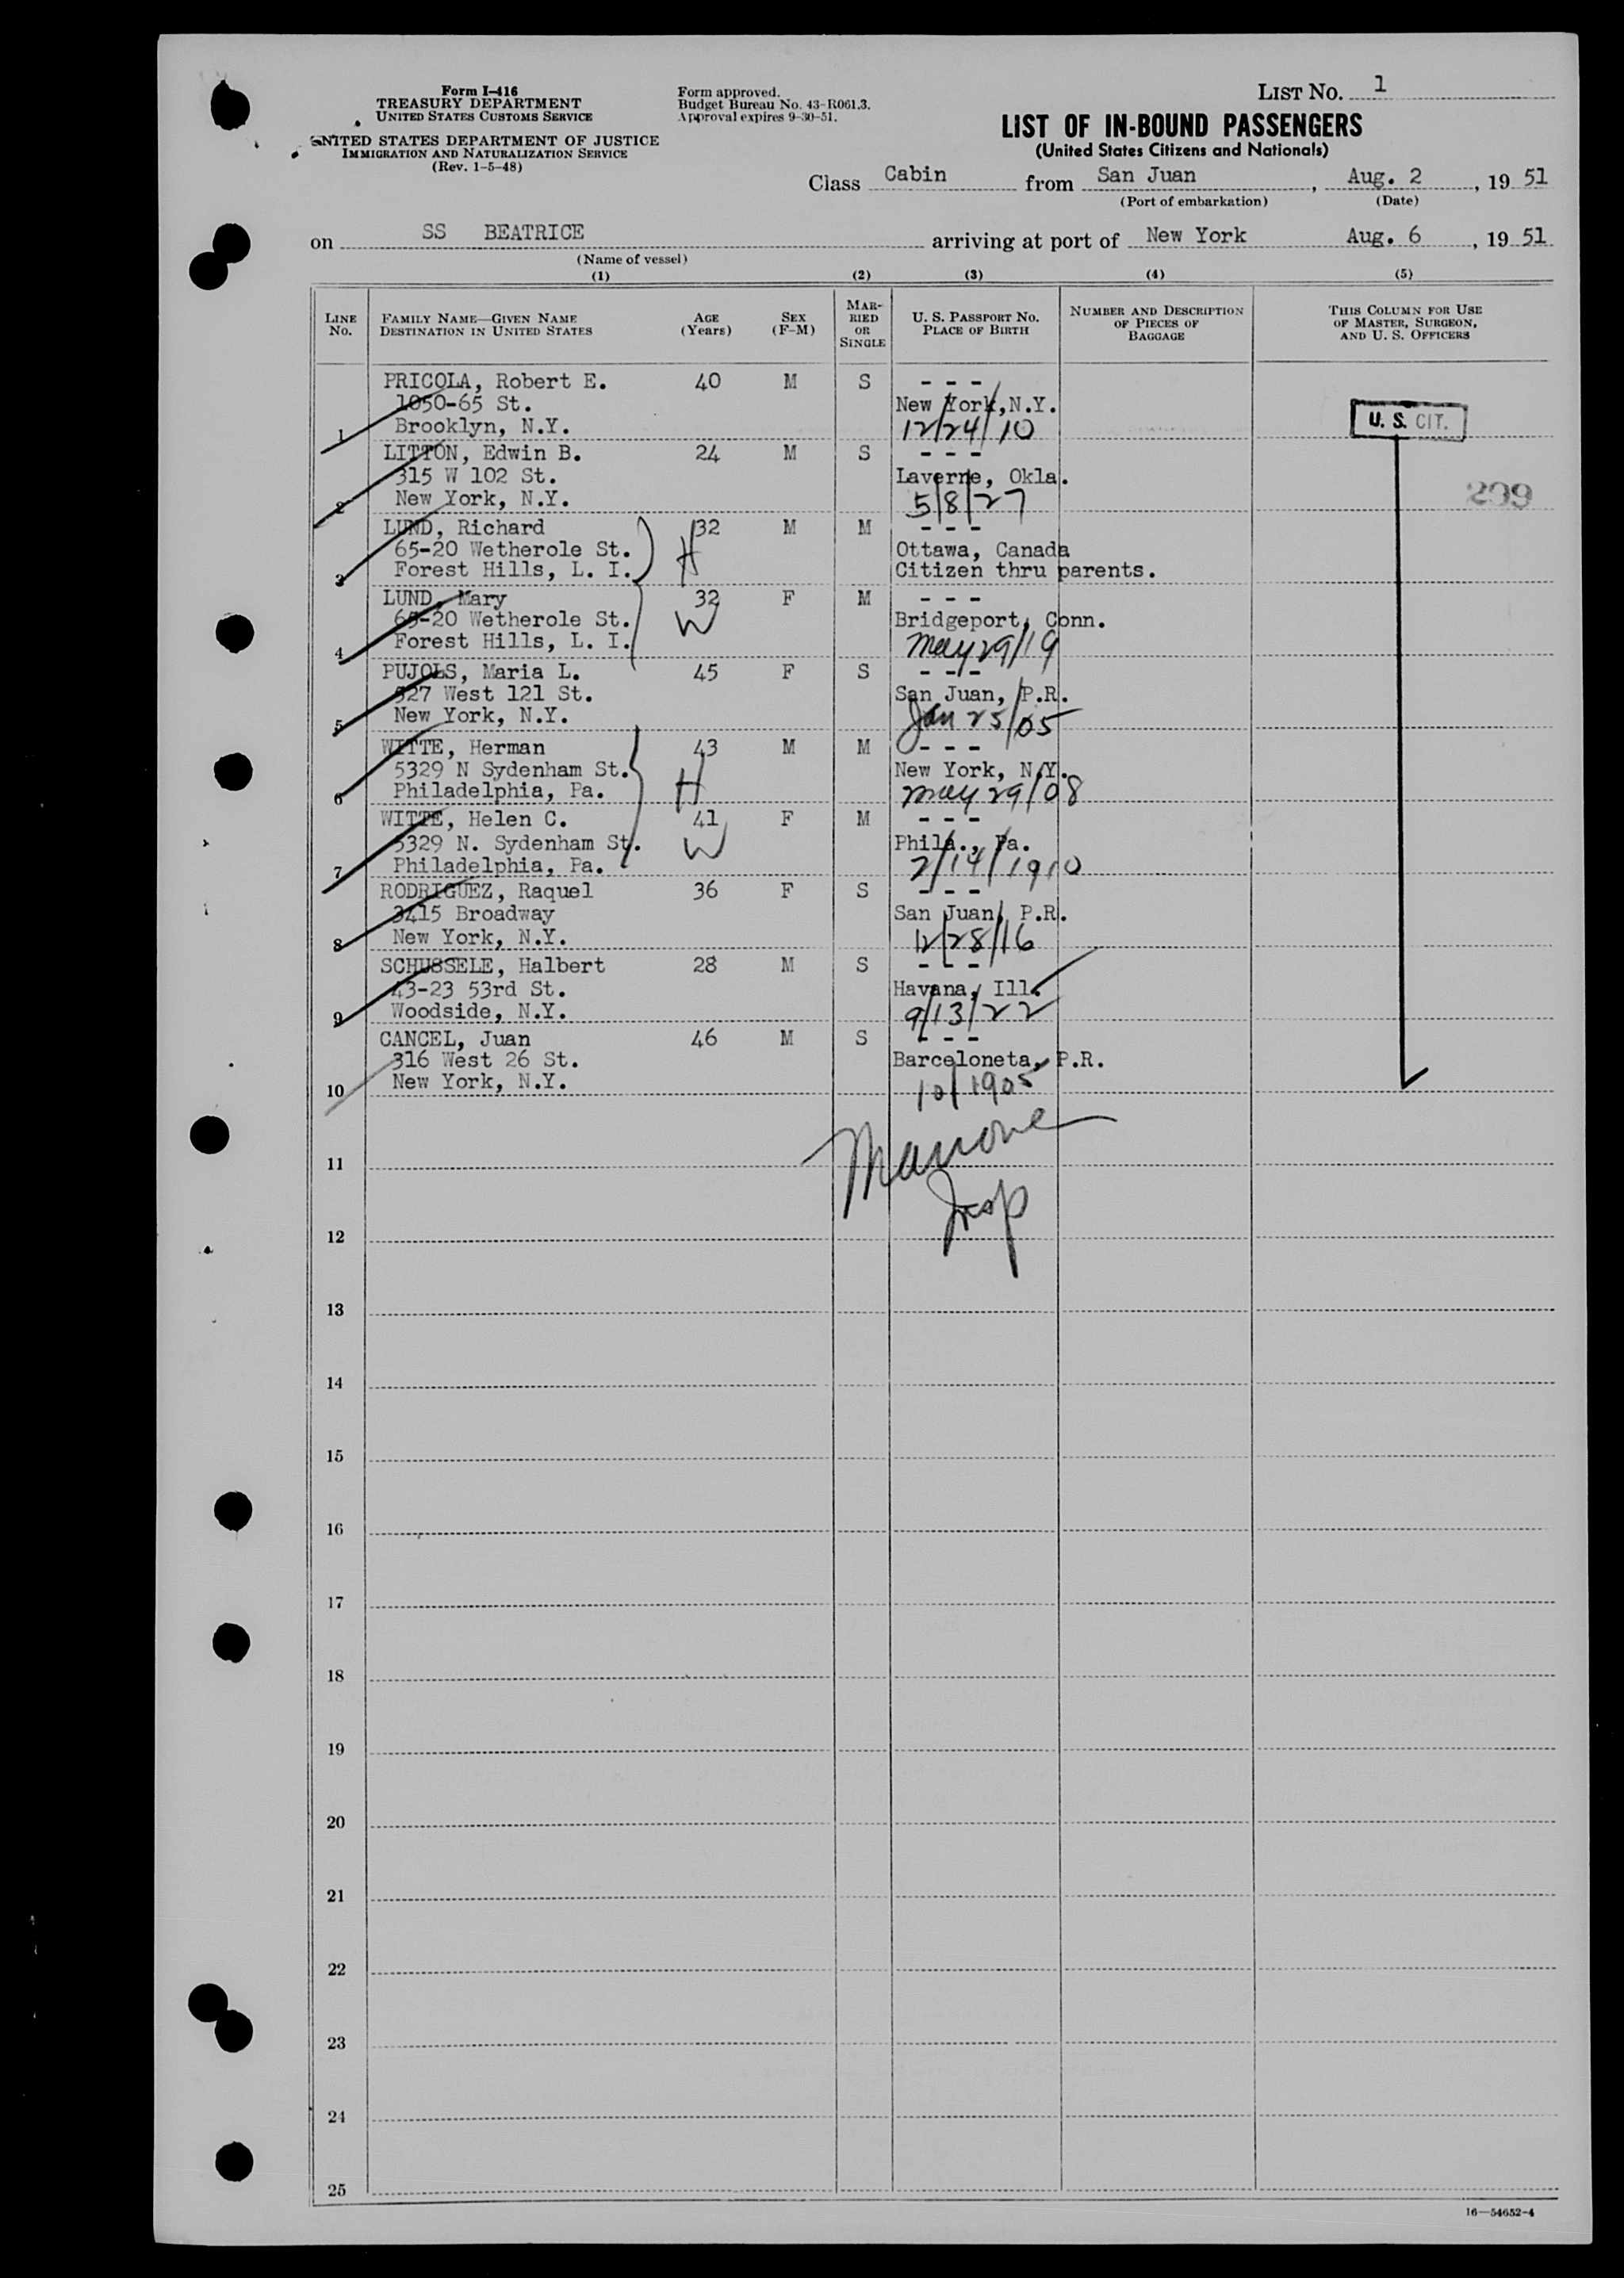 Form I-416
TREASURY DEPARTMENT
UNITED STATES CUSTOMS SERVICE
UNITED STATES DEPARTMENT OF JUSTICE
IMMIGRATION AND NATURALIZATION SERVICE
(Rev. 1-5-48)
Form approved.
Budget Bureau No. 43-R061.3.
Approval expires 9-30-51.
LIST NO. 1
LIST OF IN-BOUND PASSENGERS
(United States Citizens and Nationals)
Class Cabin from San Juan, Aug. 2, 1951
(Port of embarkation) (Date)
on SS BEATRICE arriving at port of New York Aug. 6, 1951
(Name of vessel)
(1) (2) (3) (4) (5)
LINE NO. FAMILY NAME—GIVEN NAME DESTINATION IN UNITED STATES AGE (Years) SEX (F-M) MARRIED OR SINGLE U. S. PASSPORT NO. PLACE OF BIRTH NUMBER AND DESCRIPTION OF PIECES OF BAGGAGE THIS COLUMN FOR USE OF MASTER, SURGEON, AND U. S. OFFICERS
PRICOLA, Robert E. 40 M S - - -
1050-65 St. New York, N.Y. U. S. CIT.
1 Brooklyn, N.Y. 12/24/10
LITTON, Edwin B. 24 M S - - -
315 W 102 St. Laverne, Okla. 299
2 New York, N.Y. 5/8/27
LUND, Richard 32 M M - - -
65-20 Wetherole St. H Ottawa, Canada
3 Forest Hills, L. I. Citizen thru parents.
LUND, Mary 32 F M - - -
65-20 Wetherole St. W Bridgeport, Conn.
4 Forest Hills, L. I. May 29/19
PUJOLS, Maria L. 45 F S - - -
527 West 121 St. San Juan, P.R.
5 New York, N.Y. Jan 25/05
WITTE, Herman 43 M M - - -
5329 N Sydenham St. H New York, N.Y.
6 Philadelphia, Pa. May 29/08
WITTE, Helen C. 41 F M - - -
5329 N. Sydenham St. W Phila., Pa.
7 Philadelphia, Pa. 2/14/1910
RODRIGUEZ, Raquel 36 F S - - -
3415 Broadway San Juan, P.R.
8 New York, N.Y. 12/28/16
SCHUSSELE, Halbert 28 M S - - -
43-23 53rd St. Havana, Ill.
9 Woodside, N.Y. 9/13/22
CANCEL, Juan 46 M S - - -
316 West 26 St. Barceloneta, P.R.
10 New York, N.Y. 10/1905
11
12
13
14
15
16
17
18
19
20
21
22
23
24
25
16—54652-4